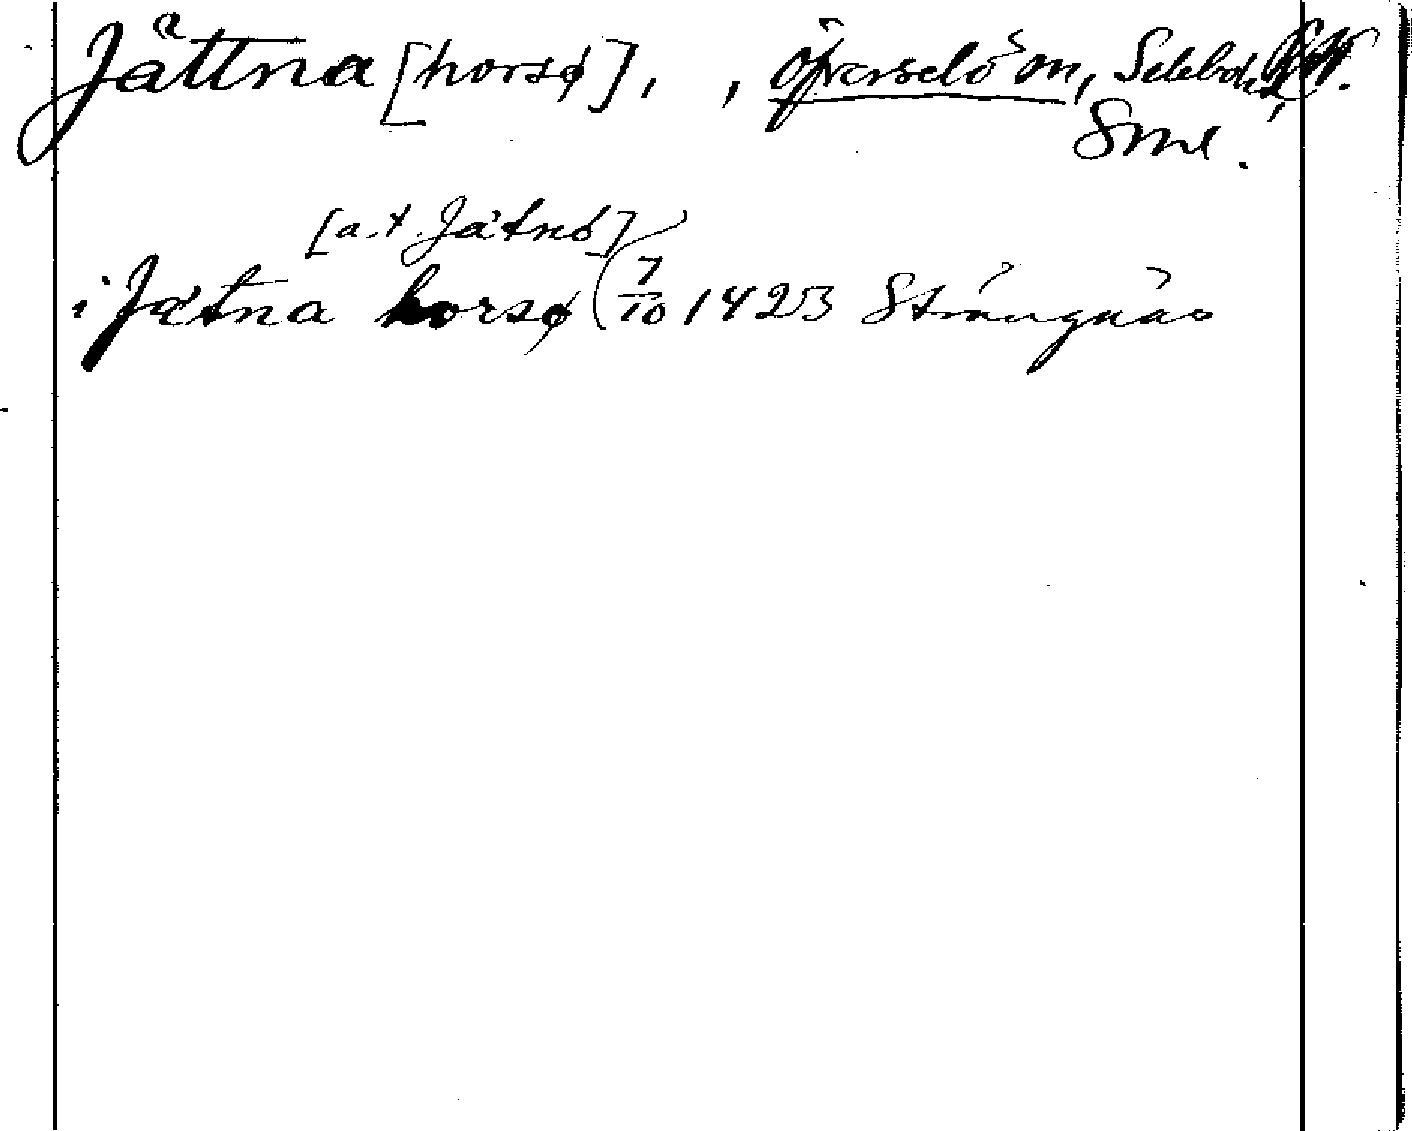 Jättna [horsø], , Öfverselö sn, Selebo h.
Sml.
[a.t. Jätnö]
i Jætna horsø ( 7/10 1423 Strängnäs